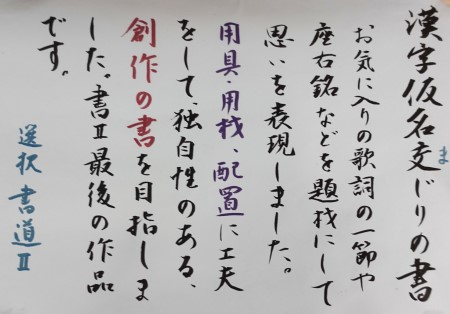 漢字仮名交じりの書
ま
お気に入りの歌詞の一節や
座右銘などを題材にして
思いを表現しました。
用具、用材、配置に工夫
をして、独自性のある、
創作の書を目指しま
した。書Ⅱ最後の作品
です。
選択 書道Ⅱ